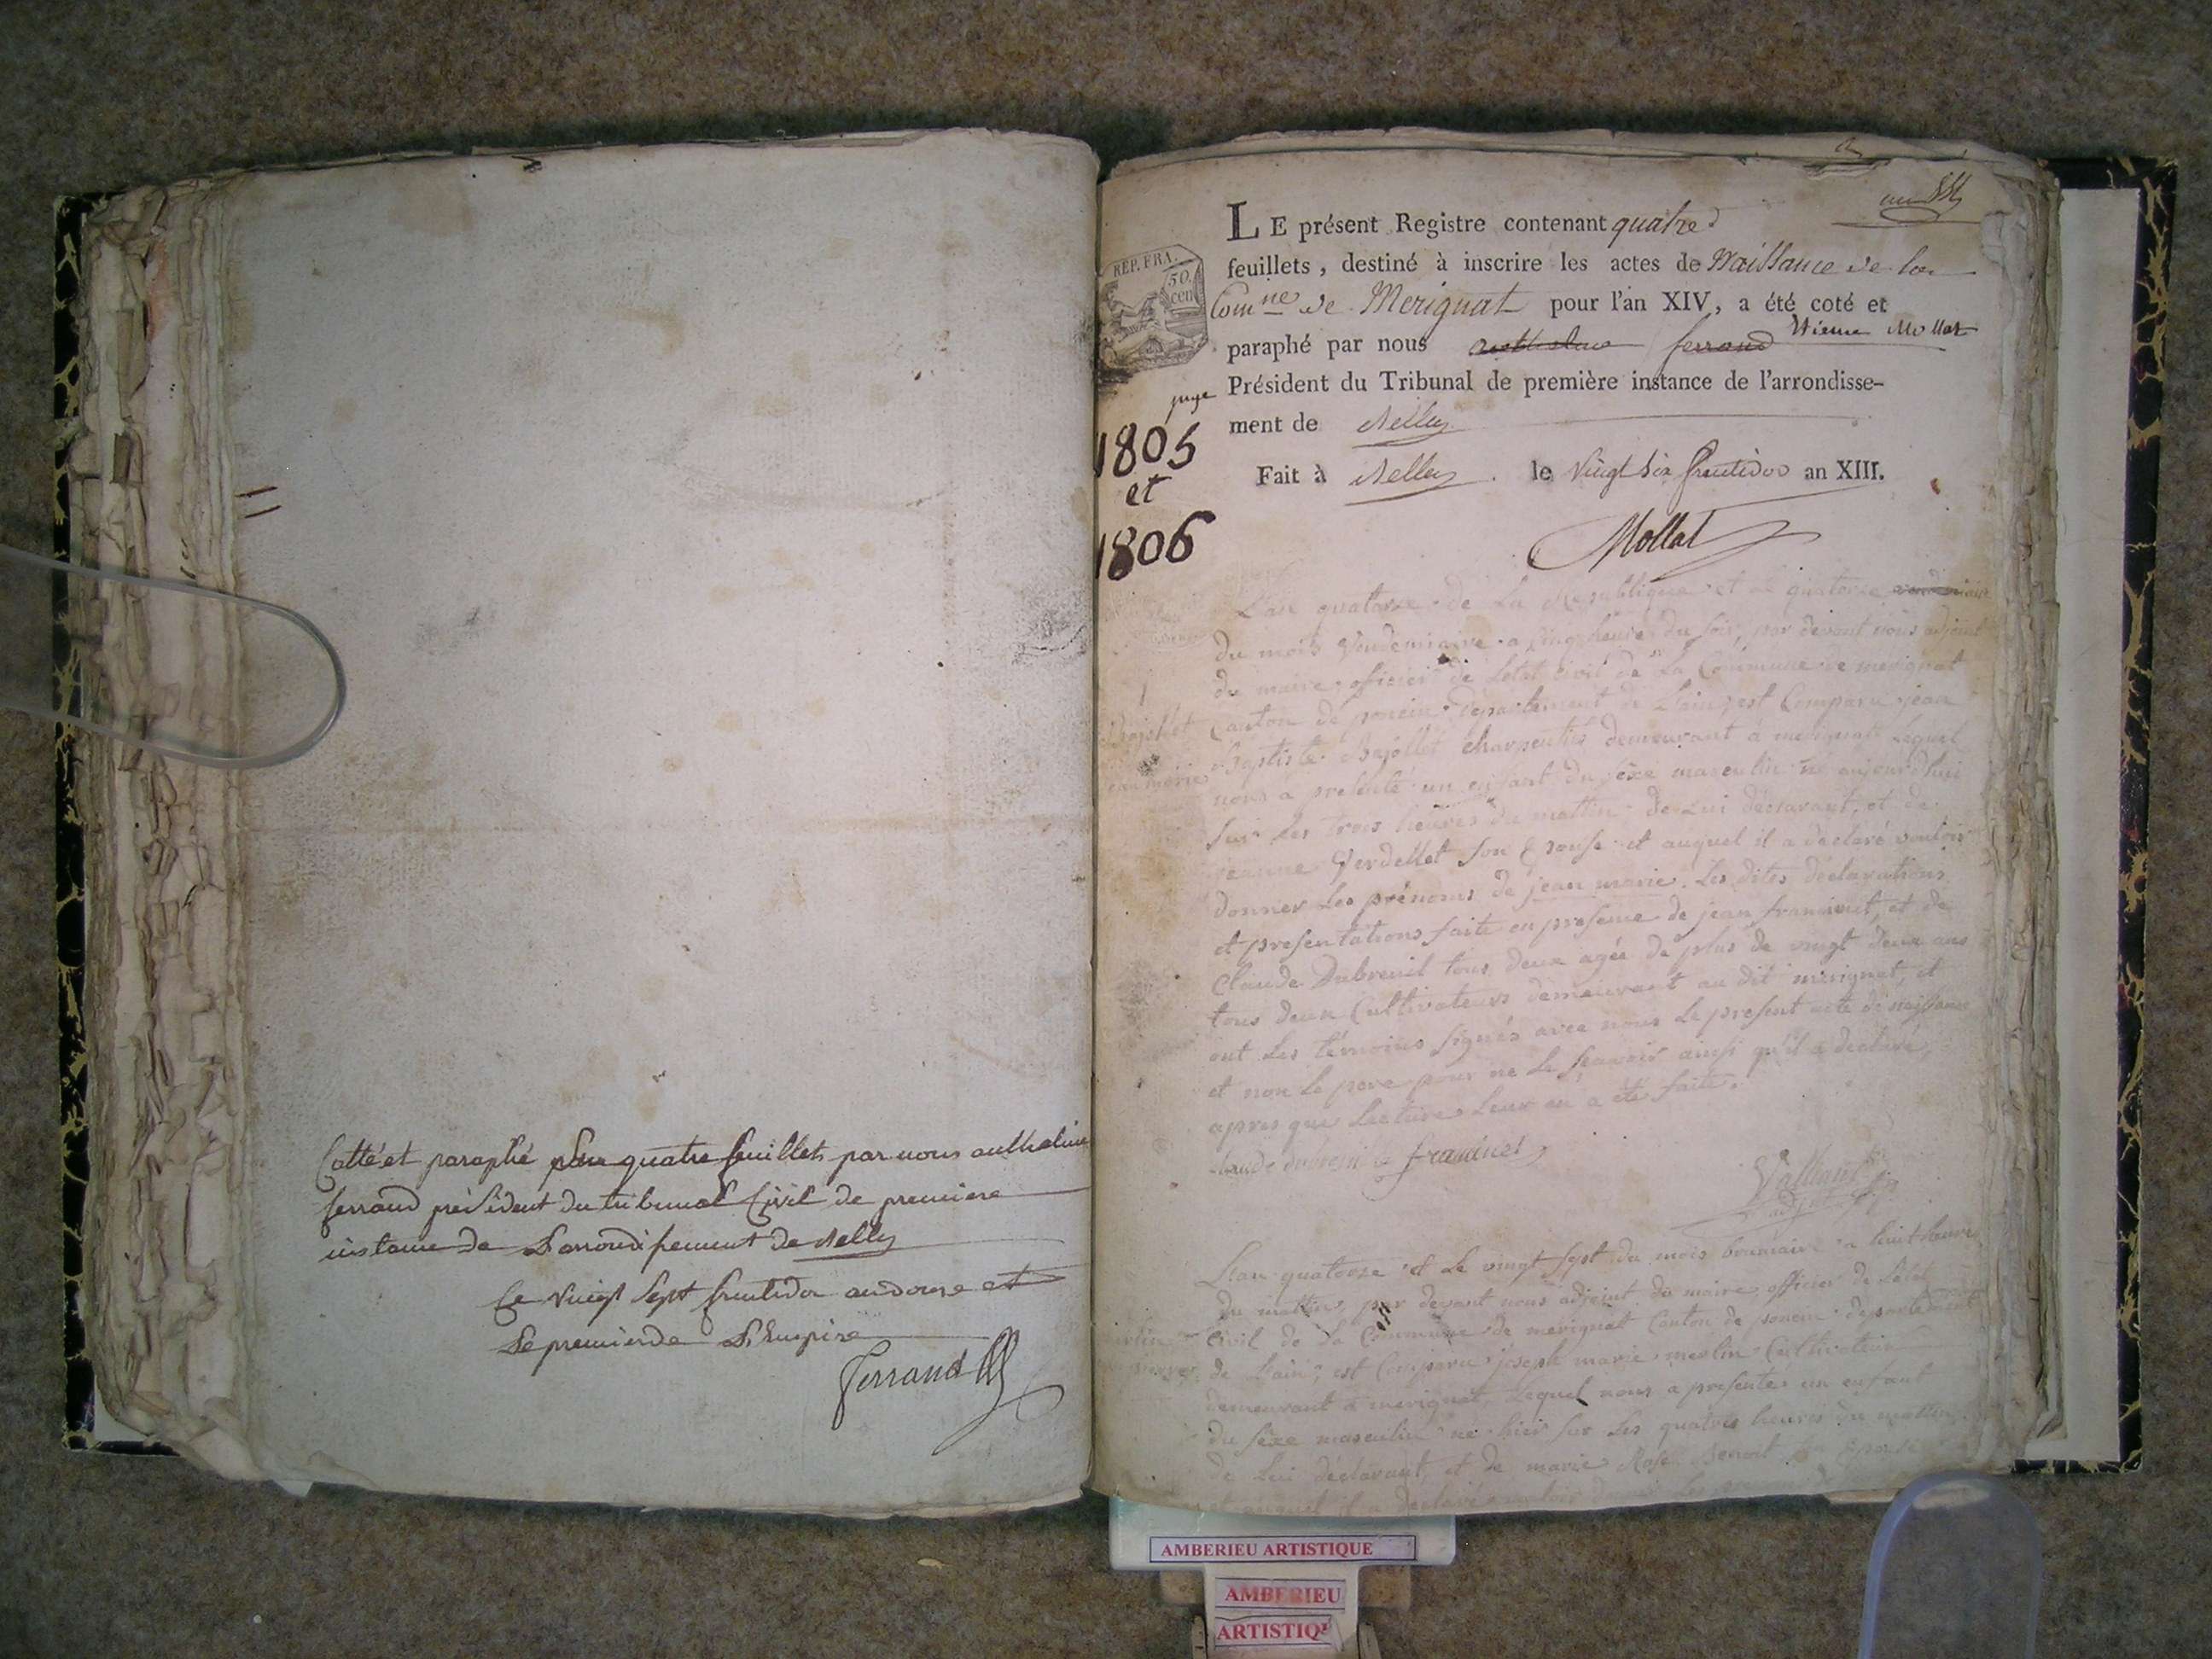 Cotté et paraphé pour quatre feuillets par nous anthelme
ferrand président du tribunal Civil de premiere
instance de L'arrondissement de Belley
Ce vingt sept fructidor an douze et
Le premier de L'Empire
Ferrand
an 14
LE présent Registre contenant quatre
feuillets, destiné à inscrire les actes de Naissance de la
Comne de Merignat pour l'an XIV, a été coté et
paraphé par nous anthelme ferrand Etienne Mollat
juge
Président du Tribunal de première instance de l'arrondisse-
ment de Belley
Fait à Belley le Vingt six fructidor an XIII.
Mollat
REP. FRA.
50
cen
1805
et
1806
L'an quatorze de La Republique et le quatorze
du mois Vendemiaire a cinq heures du soir, par devant nous adjoint
du maire officier de Letat Civil de La Commune de merignat
Canton de poncin departement de L'ain, est Comparu jean
Baptiste Bajollet charpentier demeurant a merignat Lequel
nous a presenté un enfant du sèxe masculin né aujourdhui
sur les trois heures du mattin de Lui déclarant, et de
jeanne Verdellet son Epouse et auquel il a declaré vouloir
donner Les prénoms de jean marie. Les dites declarations
et presentations faite en presence de jean franinet, et de
Claude Dubreuil tous deux agés de plus de vingt deux ans
tous deux Cultivateurs demeurant au dit merignat, et
ont les temoins signés avec nous Le present acte de naissance
et non Le pere pour ne Le sçavoir ainsi qu'il a declaré,
apres que Lecture Leur en a été faite.
Claude dubreuil franinet
adjoint
L'an quatorze et Le vingt sept du mois brumaire a huit heures
du mattin, par devant nous adjoint du maire officier de Letat
Civil de La Commune de merignat Canton de poncin departement
de L'ain, est Comparu joseph marie merlin Cultivateur
demeurant a merignat, Lequel nous a presenté un enfant
du sèxe masculin né hier sur Les quatres heures du mattin
de Lui déclarant, et de marie Rose Benoit son Epouse
et auquel il a declaré vouloir donner Les
AMBERIEU ARTISTIQUE
AMBERIEU
ARTISTIQ